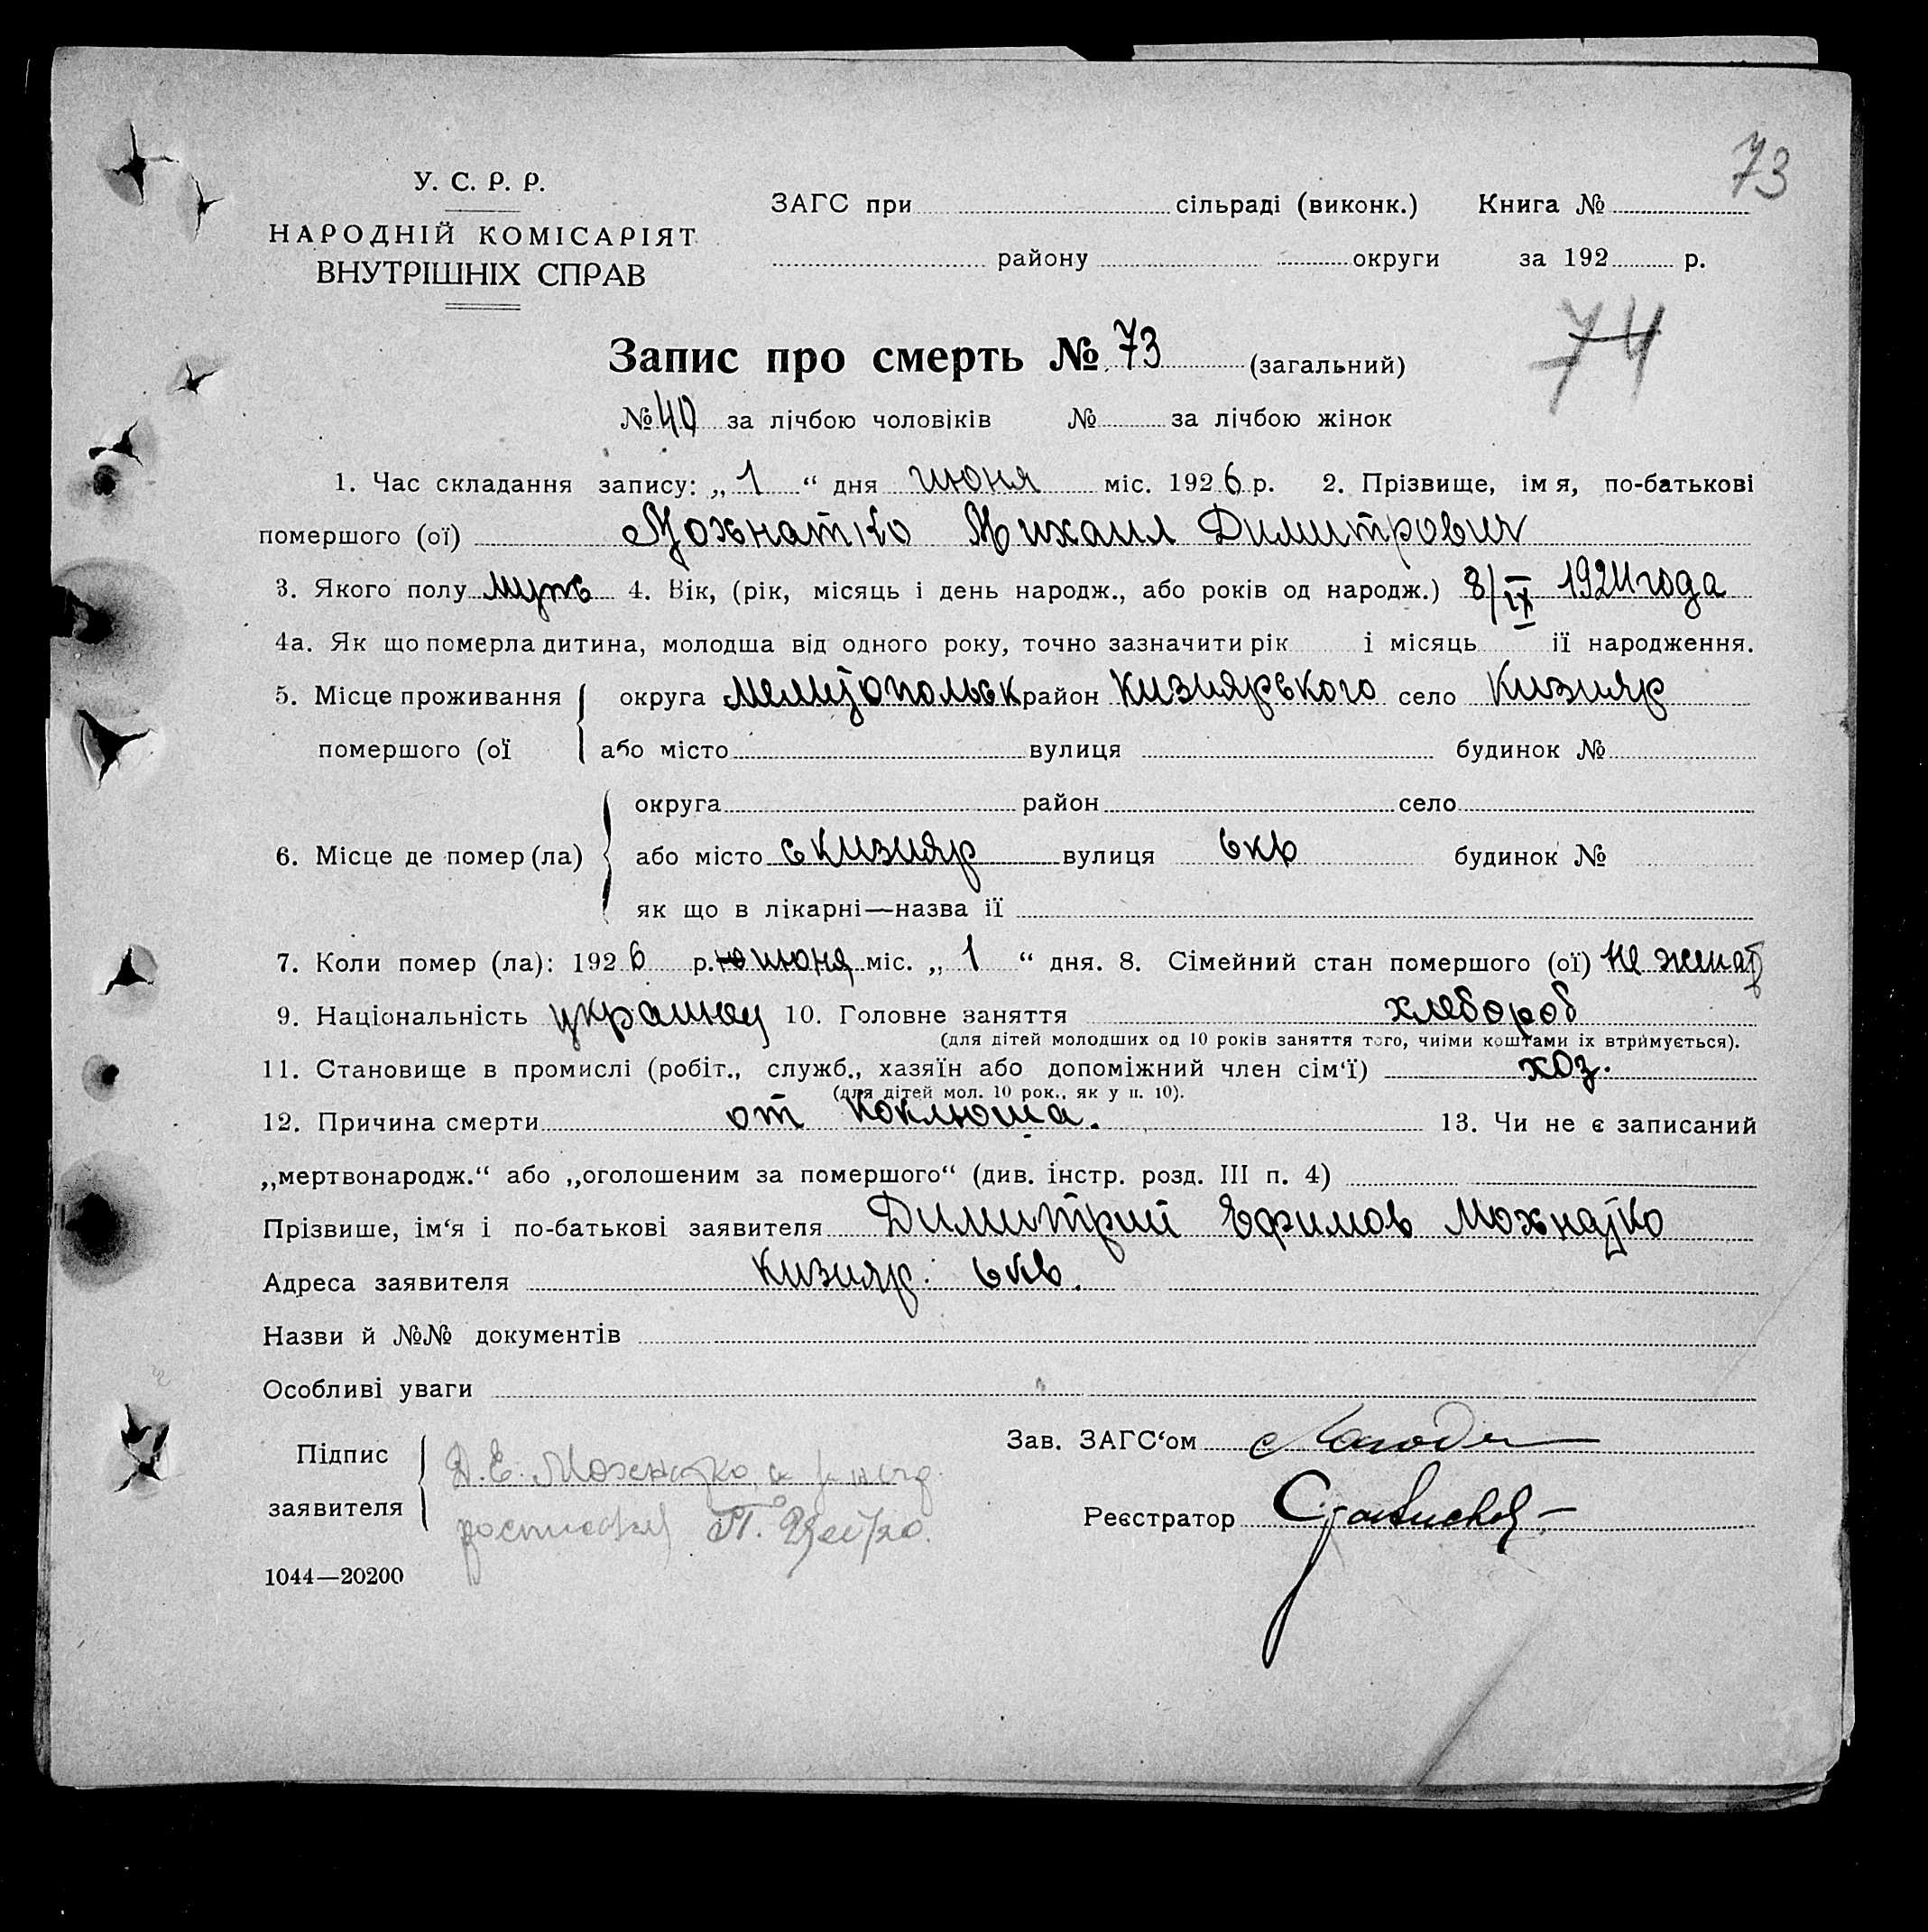 73
У. С. Р. Р.
НАРОДНІЙ КОМІСАРІЯТ
ВНУТРІШНІХ СПРАВ
ЗАГС при сільраді (виконк.) Книга №
району округи за 192 р.
Запис про смерть № 73 (загальний)
74
№ 40 за лічбою чоловіків № за лічбою жінок
1. Час складання запису: „ 1 “ дня июня міс. 1926 р. 2. Прізвище, імя, по-батькові
помершого (ої) Мохнатко Михаил Димитрович
3. Якого полу муж 4. Вік, (рік, місяць і день народж., або років од народж.) 8/IX 1924 года
4а. Як що померла дитина, молодша від одного року, точно зазначити рік і місяць її народження.
5. Місце проживання округа Мелитопольск район Кизиярского село Кизияр
помершого (ої або місто вулиця будинок №
округа район село
6. Місце де помер (ла) або місто с Кизияр вулиця 6 кв будинок №
як що в лікарні—назва її
7. Коли помер (ла): 1926 р. июня міс. „ 1 “ дня. 8. Сімейний стан помершого (ої) не женат
9. Національність 10. Головне заняття хлебороб
(для дітей молодших од 10 років заняття того, чиїми коштами їх втримується).
11. Становище в промислі (робіт., служб., хазяїн або допоміжний член сім‘ї) хоз.
(для дітей мол. 10 рок., як у п. 10).
12. Причина смерти от коклюша. 13. Чи не є записаний
„мертвонародж.“ або „оголошеним за помершого“ (див. інстр. розд. III п. 4)
Прізвише, ім‘я і по-батькові заявителя Димитрий Ефимов Мохнатко
Адреса заявителя Кизияр. 6 кв.
Назви й №№ документів
Особливі уваги
Підпис Д. Е. Мохнатко
заявителя
Зав. ЗАГС‘ом
Реєстратор
1044—20200